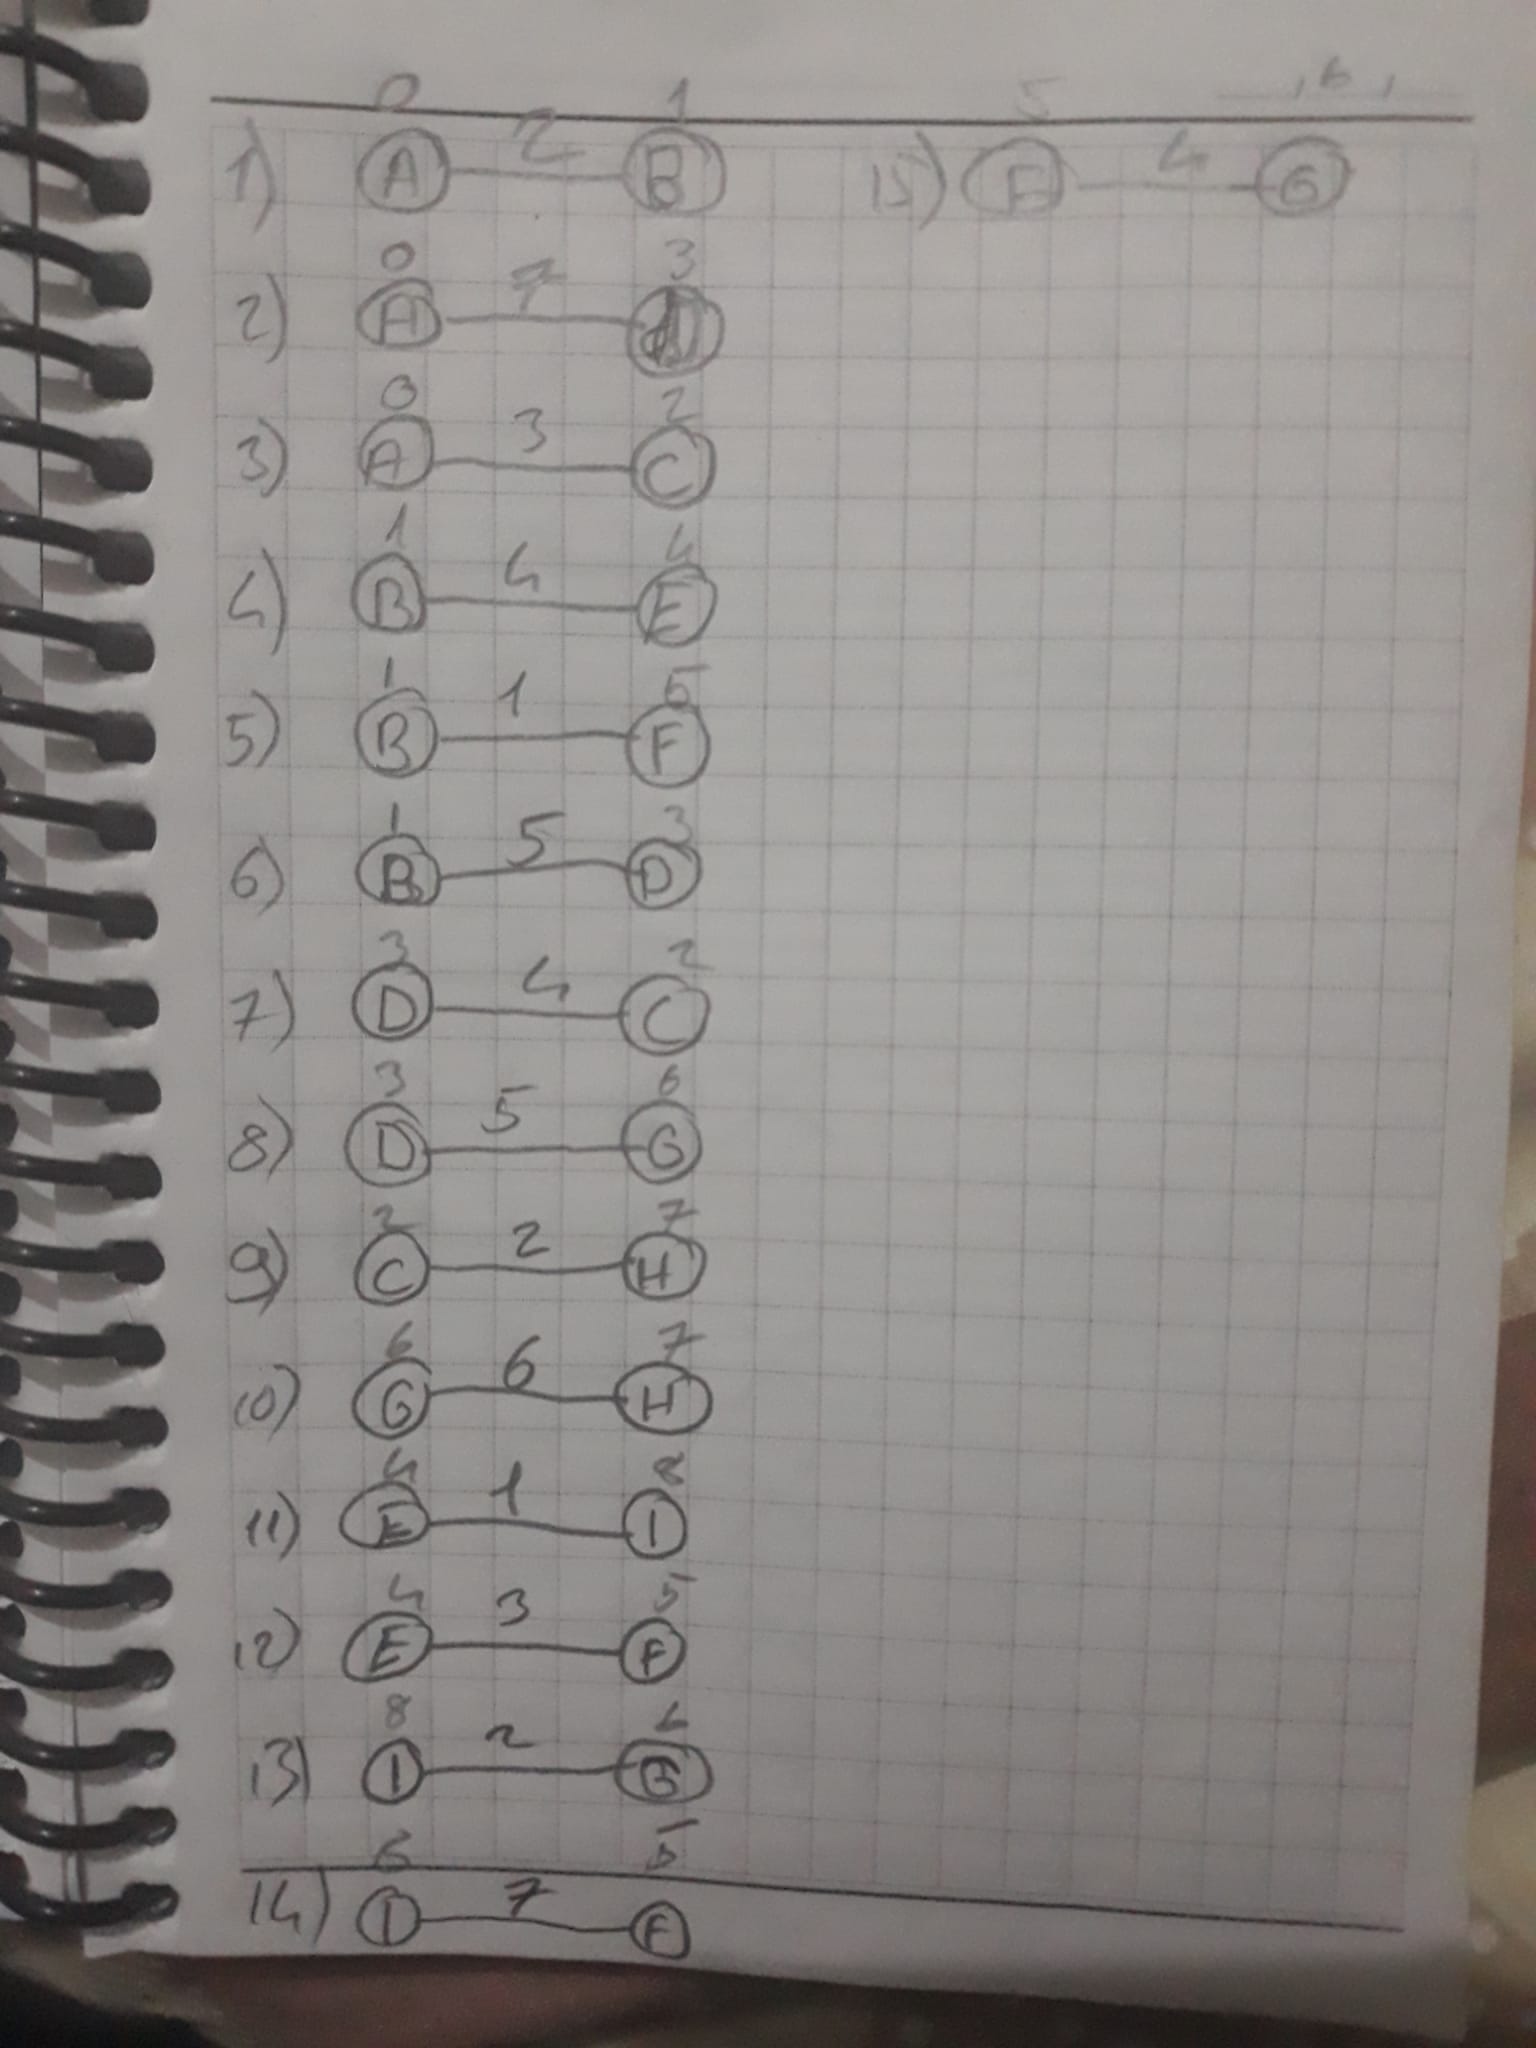 0 1
1) A 2 B
0 3
2) A 7
0 2
3) A 3 C
1 4
4) B 4 E
1 5
5) B 1 F
1 3
6) B 5 D
3 2
7) D 4 C
3 6
8) D 5 G
2 7
9) C 2 H
6 7
10) G 6 H
4 8
11) E 1 I
4 5
12) E 3 F
8 6
13) I 2 G
6 5
14) I 7 F
5 6
15) F 4 G